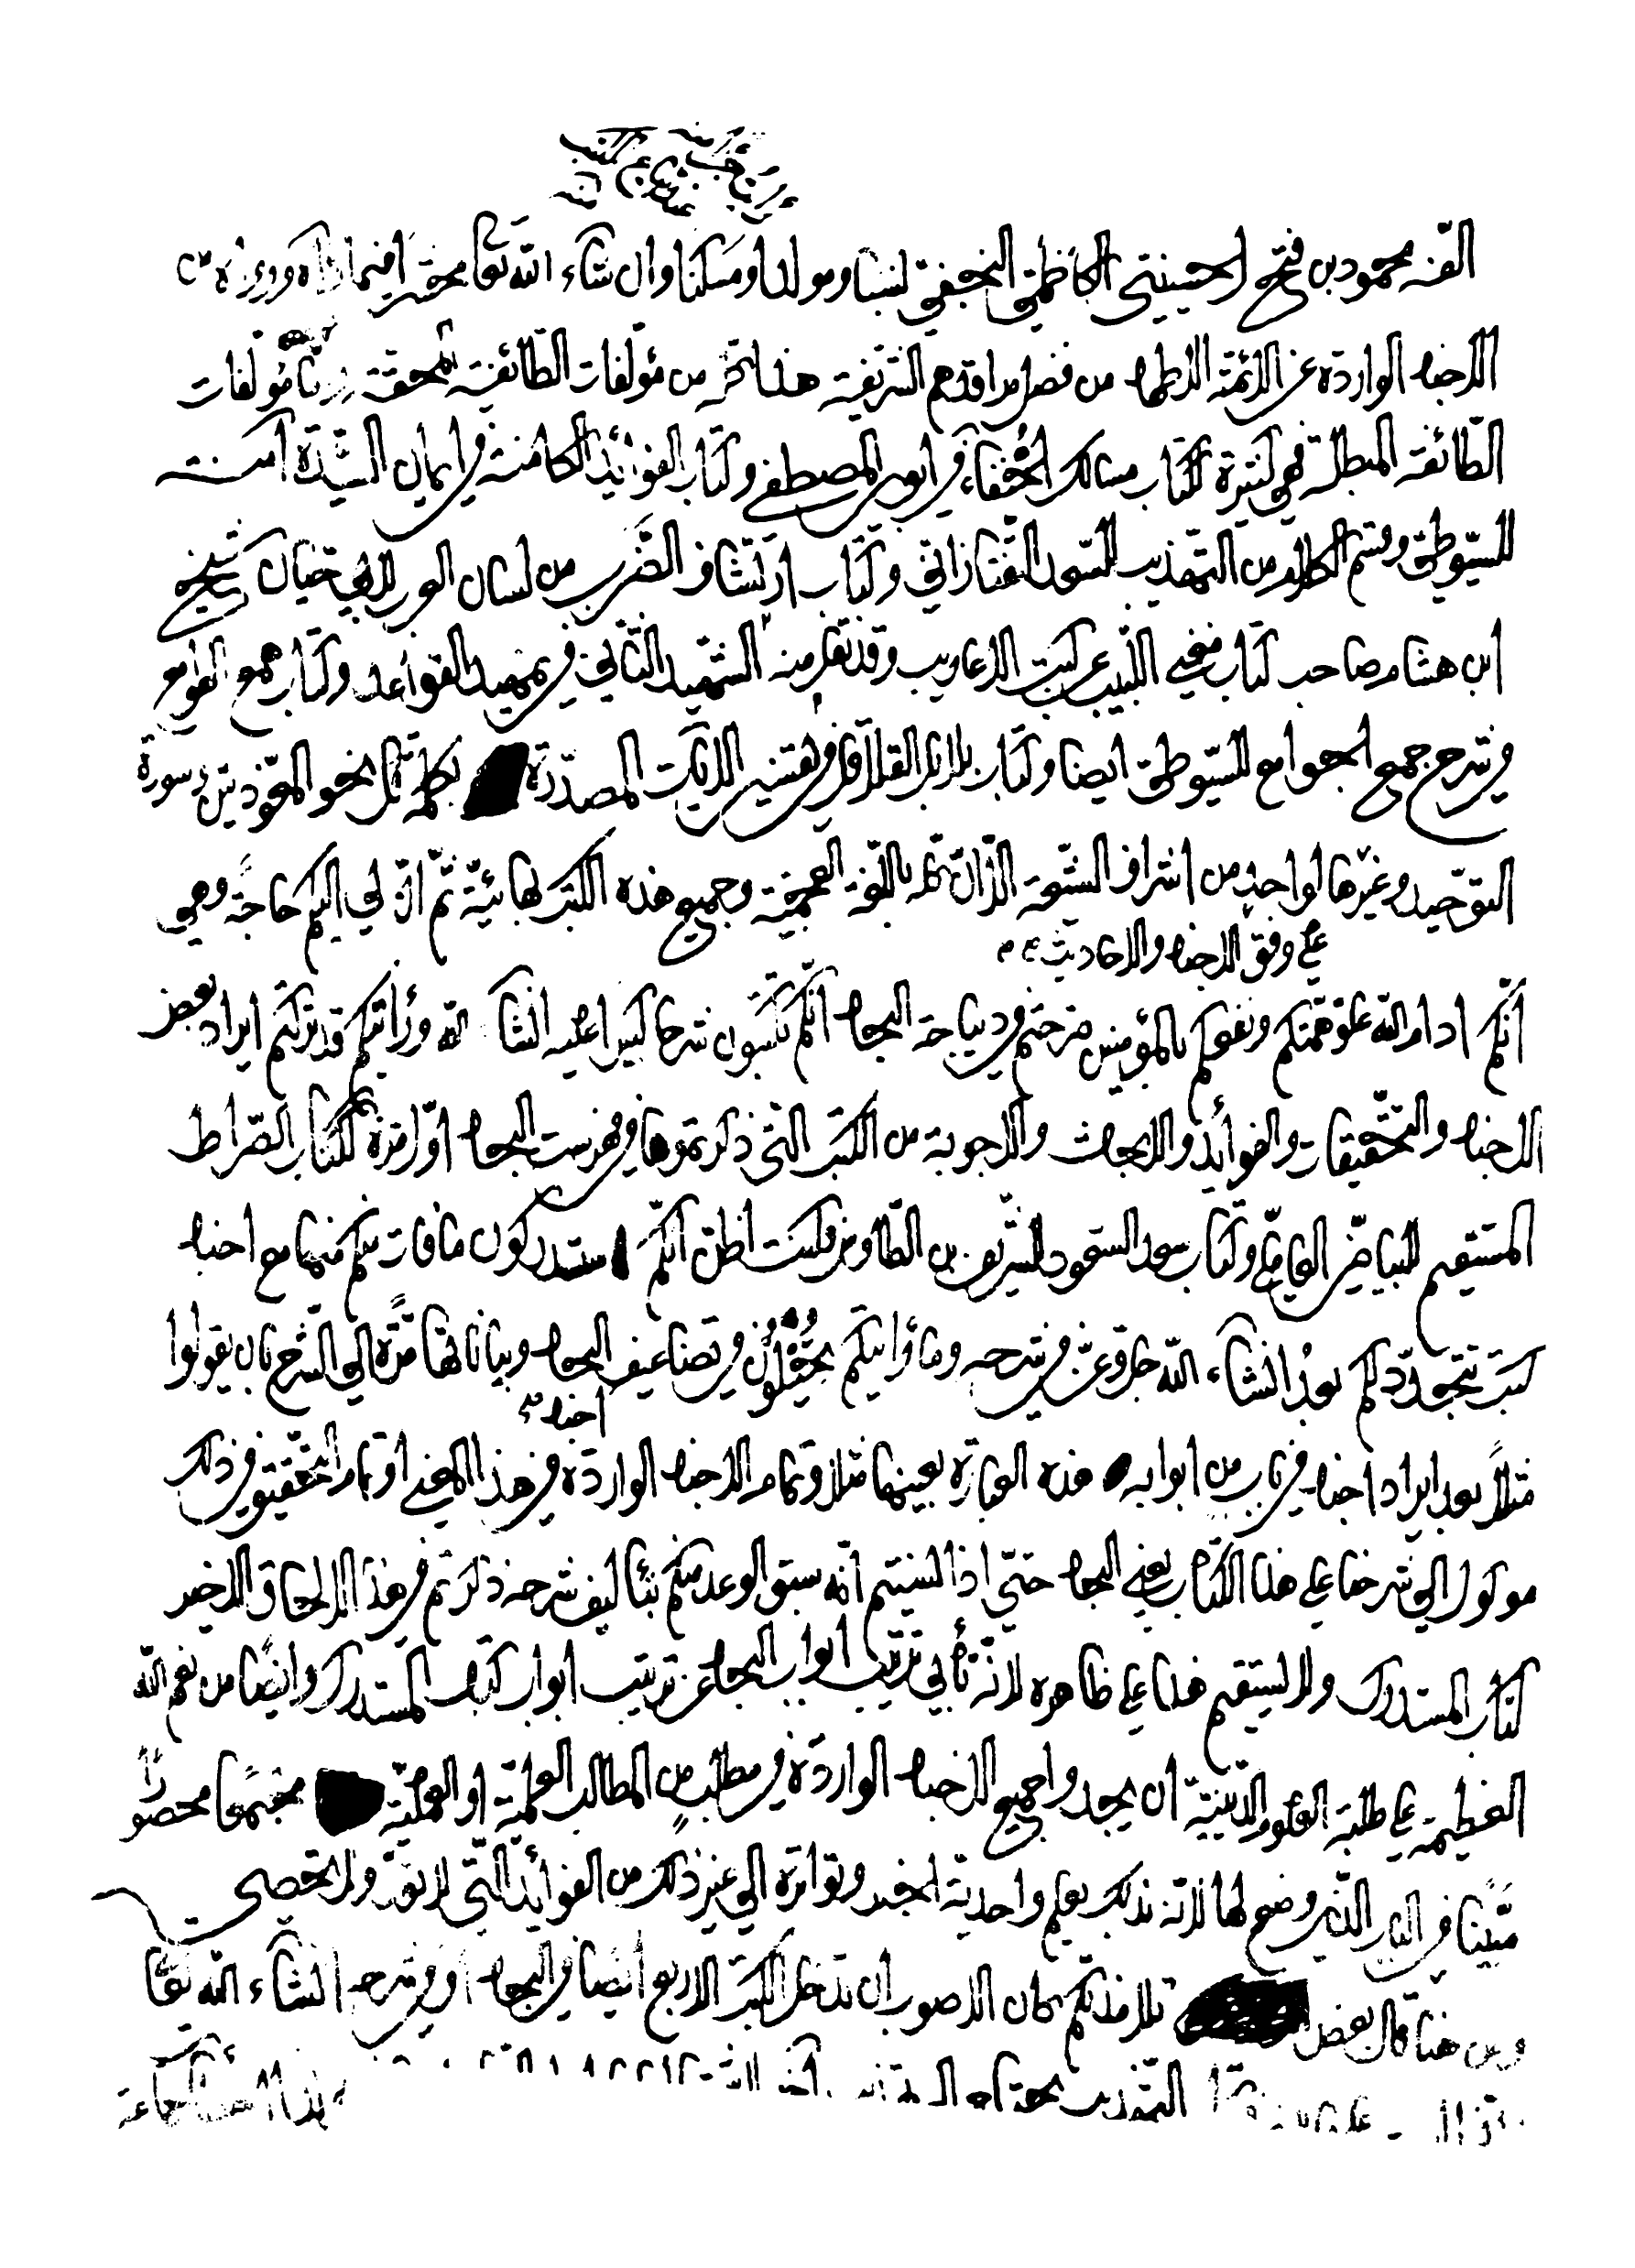 الفه محمود بن فتح الحسيني الكاظمي النجفي نسبا ومولدا ومسكنا وان شاء الله تعا محشرا
الاخبار الواردة عن الائمة الاطهار من فضل مراقدهم الشريفة هذا من مؤلفات الطائفة المحقة مؤلفات
الطائفة المبطلة فهي كثيرة ككتاب مسالك الحنفاء في ابوي المصطفى وكتاب الفوائد الكامنة في ايمان السيدة آمنة
للسيوطي وقسم الكلام من التهذيب للسعد التفتازاني وكتاب ارتشاف الضرب من لسان العرب لابي حيان شيخ
ابن هشام صاحب كتاب مغني اللبيب عن كتب الاعاريب وقد نقل منه الشهيد الثاني في تمهيد القواعد وكتاب همع الهوامع
في شرح جمع الجوامع للسيوطي ايضا وكتاب بلابل القلاقل في تفسير الايات المصدرة بكلمة قل نحو المعوذتين وسورة
التوحيد وغيرها لواحد من اشراف الشيعة الا انه باللغة العجمية وجميع هذه الكتب ثم ان لي اليكم حاجة وهي
على وفق الاخبار والاحاديث
انكم ادام الله علو همتكم ونفعكم بالمؤمنين صرحتم في ديباجة البحار انكم تكتبون شرحا كبيرا عليه انشا الله ورأيتكم قد تركتم ايراد بعض
الاخبار والتحقيقات والفوائد والابحاث والاجوبة من الكتب التي ذكرتموها في فهرست البحار اولا مرة ككتاب الصراط
المستقيم للبياضي العاملي وكتاب سعد السعود للشريف بن الطاوس فكنت اظن انكم ستدركون ما فات منكم منها مع اخبار
كتب تتجدد لكم بعد انشاء الله جل وعز في شرحه وما رأيتكم تحيلون في تضاعيف البحار وبياناتها مرة الى الشرح بان يقولوا
اخبار
مثلا بعد ايراد اخبار في باب من ابوابه هذه العبارة بعينها مثلا وتمام الاخبار الواردة في هذا المعنى او تمام التحقيق في ذلك
موكول الى شرحنا على هذا الكتاب يعني البحار حتى اذا نسيتم انه سبق الوعد منكم بتأليف شرحه ذكرتم في هذا الالحاق الاخير
كتاب المستدرك ولا يستقيم هذا على ظاهره لانه يأبى ترتيب ابواب البحار عن ترتيب ابواب كتاب المستدرك وايضا من نعم الله
العظيمة على طلبة العلوم الدينية ان يجدوا جميع الاخبار الواردة في مطلب من المطالب العلمية او العملية مجتمعا محصورا
مبينا في الباب الذي وضع لها لانه بذلك يعلم واحدية الخبر وتواتره الى غير ذلك من الفوائد التي لا تعد ولا تحصى
ومن هنا قال بعض تلامذتكم كان الاصوب ان تدخل الكتب الاربع ايضا في البحار او في شرحه انشاء الله تعا
التهذيب